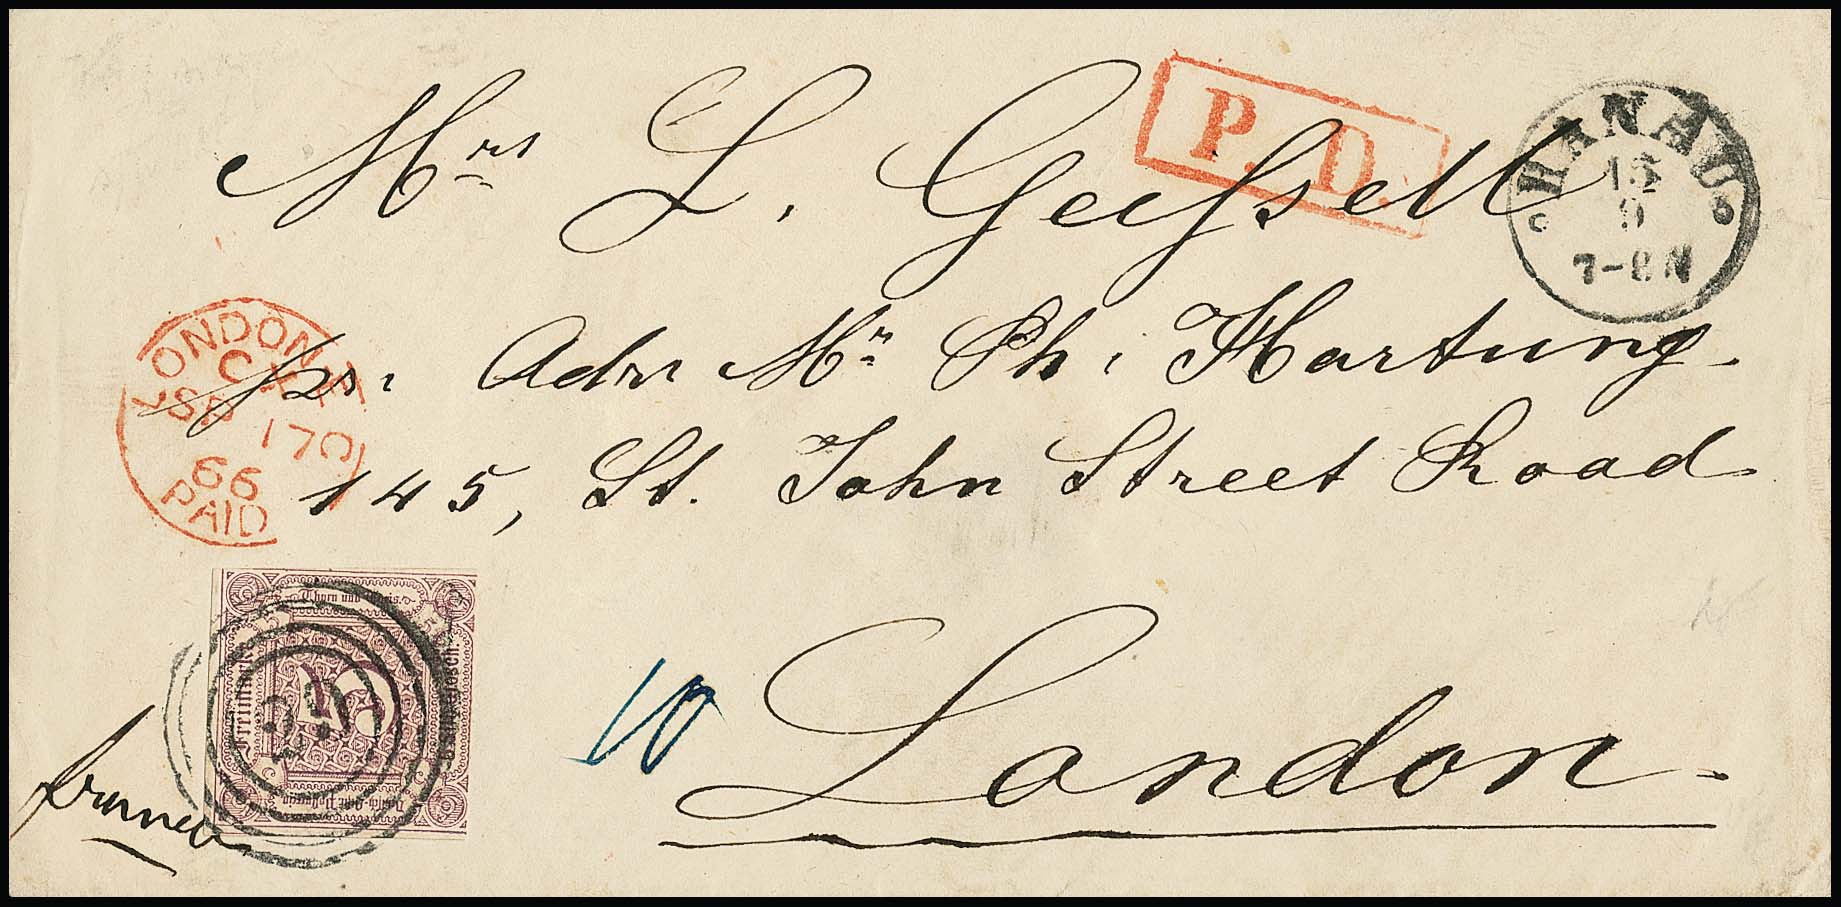 P. D.
HANAU
15
9
7-8 N
Mrs L. Geissell
pr. Adr. Mr Ph. Hartung
145, St. John Street Road
London.
LONDON
SP 17
66
PAID
Thurn und Taxis.
5
Deutsch-Östr. Postverein
franco
10